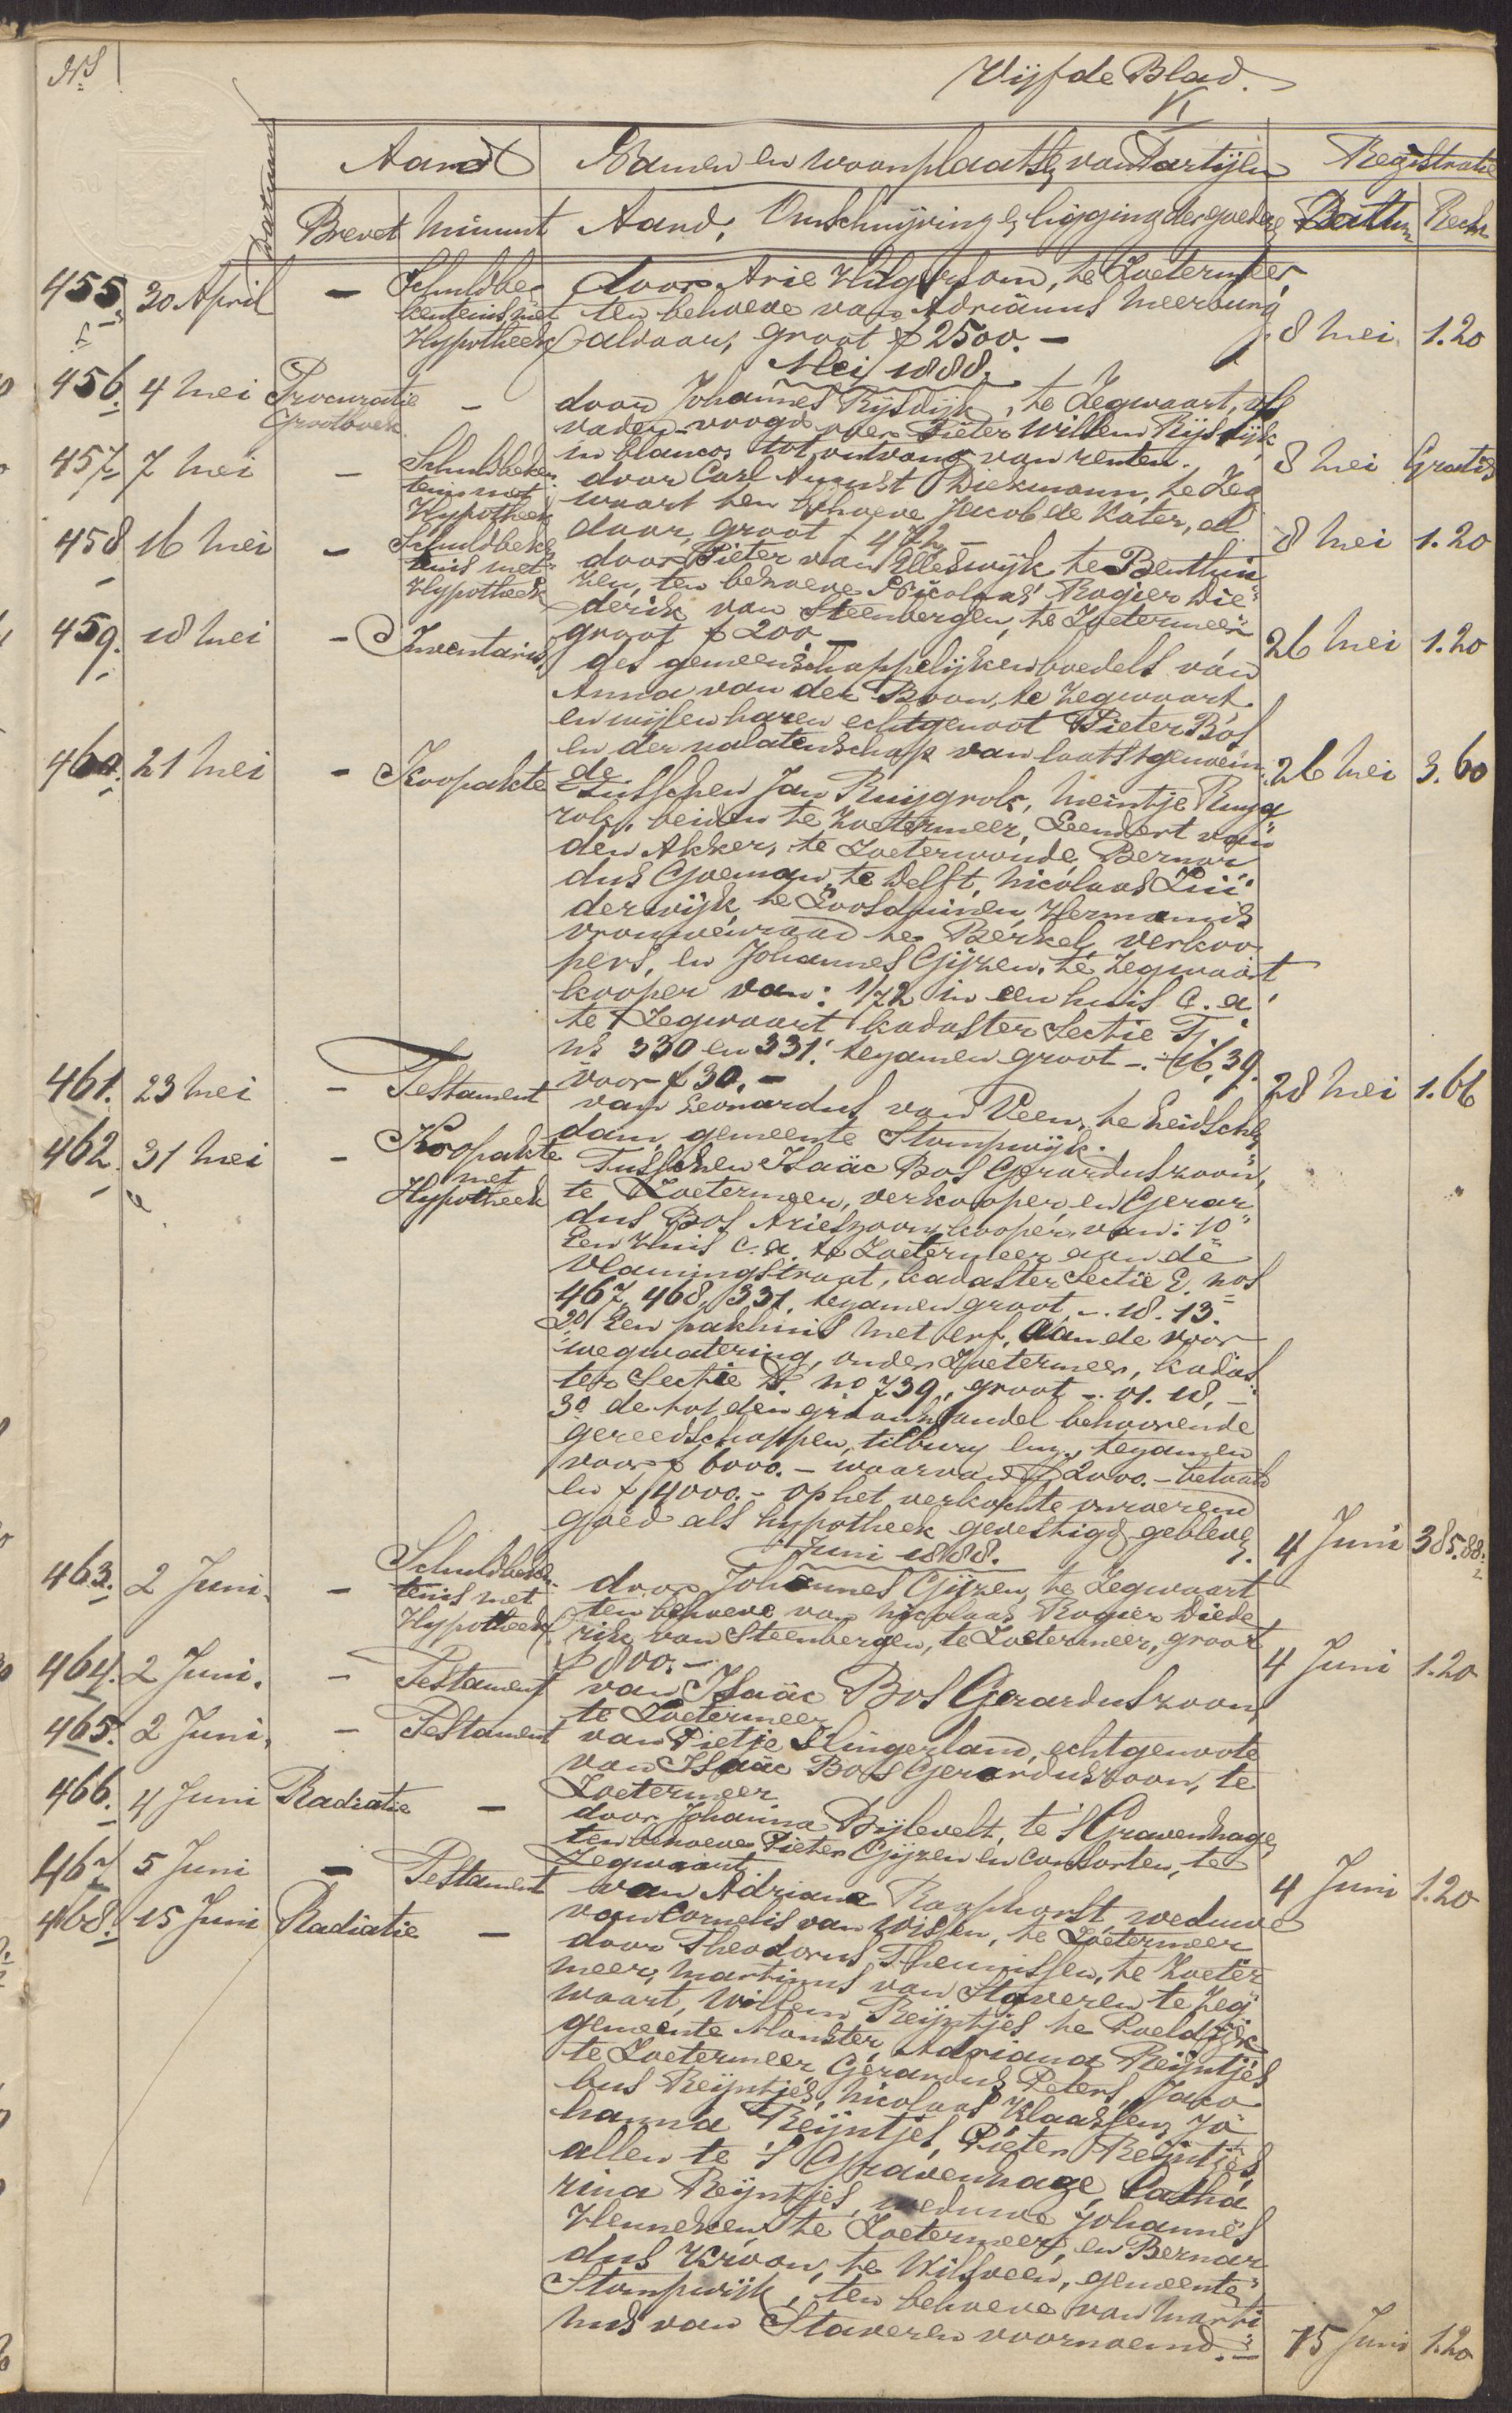 Nos
Vijfde Blad.
Datums
Aard
Namen en woonplaatsen van Partijen
Registratie
Brevet
Minuut
Aard, Omschrijving & ligging der goederen
Datum
Recht
455. 30 April - Schuldbe door Arie Hilgersom, te Zoetermeer,
kentenis met ten behoeve van Adrianus Meerburg
Hypotheek aldaar, groot ƒ 2500.- 8 Mei 1.20
Mei 1888.
456. 4 Mei Procuratie - door Johannes Rijsdijk, te Zegwaart, als
Grootboek vader-voogd over Pieter Willem Rijsdijk
in blanco, tot ontvang van renten. 8 Mei Gratis
457. 7 Mei - Schuldbeken door Carl August Diekmann, te Zeg
tenis met waart ten behoeve Jacob de Kater, al
Hypotheek daar, groot ƒ 472.- 8 Mei 1.20
458 16 Mei - Schuldbeke door Pieter van Elleswijk te Benthui
tenis met zen, ten behoeve Nicolaas Rogier Die
Hypotheek derik van Steenbergen, te Zoetermeer
groot ƒ 200.- 26 Mei 1.20
459. 18 Mei - Inventaris des gemeenschappelijken boedels van
Anna van der Boon, te Zegwaart
en wijlen haren echtgenoot Pieter Bos
en der nalatenschap van laatstgenoem
de 26 Mei 3.60
460. 21 Mei - Koopakte Tusschen Jan Ruijgrok, Meintje Ruijg
rok, beiden te Zoetermeer, Leendert van
den Akker, te Zoeterwoude, Bernar
dus Goeman, te Delft, Nicolaas Zui
derwijk, te Loosduinen, Hermanus
Vrouwenraad te Berkel, verkoo
pers, en Johannes Gijzen, te Zegwaart
kooper van: 1/72 in een huis c.a.
te Zegwaart kadaster Sectie
ns 330 en 331. tezamen groot -. 16.39.
voor ƒ 30.- 28 Mei 1.66
461. 23 Mei - Testament van Leonardus van Veen, te Leidschen
dam, gemeente Stompwijk.
462. 31 Mei - Koopakte Tusschen Isaäc Bos Gerarduszoon,
met te Zoetermeer, verkooper, en Gerar
Hypotheek dus Bos Arieszoon, kooper, van: 1o
Een Huis c.a. te Zoetermeer aan de
Vlamingstraat, kadaster Sectie E. nos
467, 468, 331, tezamen groot -. 18. 13.
2o Een pakhuis met erf, aan de voor
wegwatering, onder Zoetermeer, kadas
ter Sectie no 739, groot -. 01. 18.-
3o de tot den graanhandel behoorende
gereedschappen, tilbury enz. tezamen
voor ƒ 6000.- waarvan ƒ 2000.- betaald
en ƒ 4000.- op het verkochte onroerend
goed als hypotheek gevestigd gebleven. 4 Juni 385.88
Juni 1888.
463. 2 Juni. - Schuldbeken door Johannes Gijzen, te Zegwaart
tenis met ten behoeve van Nicolaas Rogier Diede
Hypotheek rik van Steenbergen, te Zoetermeer, groot
ƒ 800.- 4 Juni 1.20
464. 2 Juni. - Testament van Isaäc Bos Gerarduszoon
te Zoetermeer
465. 2 Juni. - Testament van Pietje Slingerland, echtgenoote
van Isaäc Bos Gerarduszoon, te
Zoetermeer
466. 4 Juni Radiatie - door Johanna Bijlevelt, te 's Gravenhage
ten behoeve Pieter Gijzen en consorten, te
Zegwaart 4 Juni 1.20
467 5 Juni - Testament van Adriana Raaphorst weduwe
van Cornelis van Wissen, te Zoetermeer
468. 15 Juni Radiatie - door Theodorus Theunissen, te Zoeter
meer, Martinus van Staveren te Zeg
waart, Willem Reijntjes te Poeldijk
gemeente Monster, Adriana Reijntjes
te Zoetermeer, Gerardus Peters, Jaco
bus Reijntjes, Nicolaas Klaassen, Jo
hanna Reijntjes, Pieter Reijntjes,
allen te 's Gravenhage, Catha
rina Reijntjes, weduwe Johannes
Henneken te Zoetermeer, en Bernar
dus Kroon, te Wilsveen, gemeente
Stompwijk, ten behoeve van Marti
nus van Staveren voornoemd.- 15 Juni 1.20